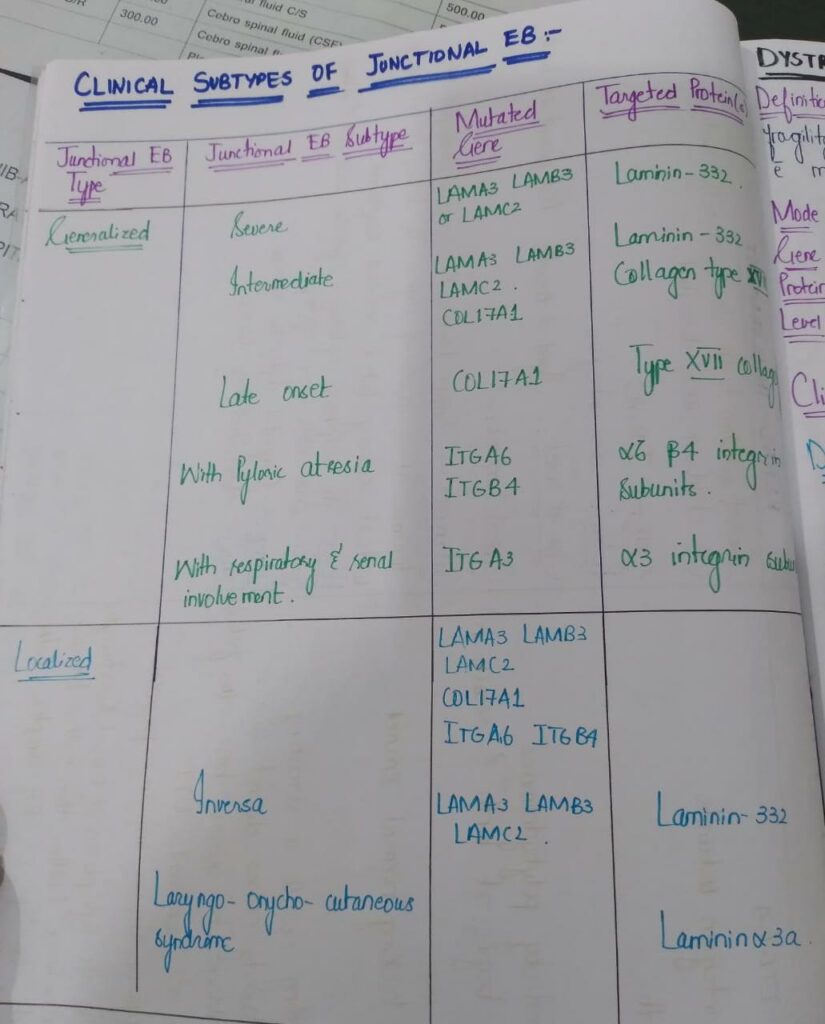 300.00
fluid C/S
Cebro spinal fluid (CSF)
Cebro spinal
500.00
CLINICAL SUBTYPES OF JUNCTIONAL EB :-
Junctional EB Type
Junctional EB Subtype
Mutated Gene
Targeted Protein(s)
Generalized
Severe
LAMA3 LAMB3
or LAMC2
Laminin-332.
Intermediate
LAMA3 LAMB3
LAMC2.
COL17A1
Laminin-332
Collagen type XVII
Late onset
COL17A1
Type XVII collag
With Pyloric atresia
ITGA6
ITGB4
α6 β4 integrin
Subunits.
With respiratory & renal
involvement.
ITGA3
α3 integrin subu
Localized
LAMA3 LAMB3
LAMC2
COL17A1
ITGA6 ITGB4
Inversa
LAMA3 LAMB3
LAMC2.
Laminin-332
Laryngo-onycho-cutaneous
syndrome
Laminin α3a.
DYSTR
Definitio
fragility
Mode
Gene
Protein
Level
Cli